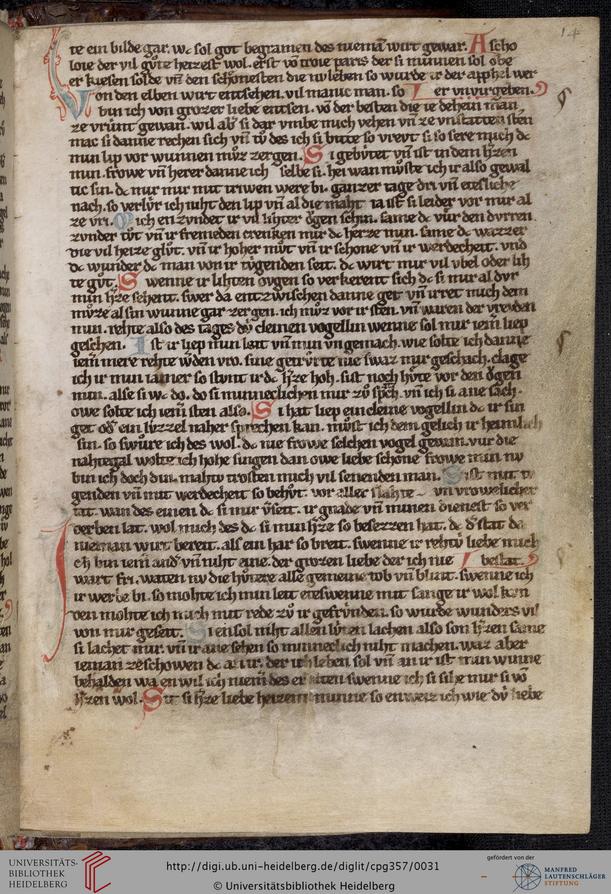 14
te ein bilde gar. wc sol got begramen des niemā wirt gewar. A scho
loie der vil gůte heizest wol. erst vō troie paris der si minnen sol obe
er kiesen solde vn̄ den schonesten die nv leben so wurde ir der apphel wer
Von den elben wirt entsehen. vil manic man. so er vn vir geben.
bin ich von grozer liebe entsen. vō der besten die ie dehein man
ze vrunt gewan. wil ab si dar vmbe mich vehen vn̄ ze vnstatten sten
mac si danne rechen sich vn̄ tv des ich si bitte so vrevt si so sere mich dc
min lip vor wunnen mvz zergen. Si gebivtet vn̄ ist in dem hzen
min. frowe vn̄ herer danne ich selbe si. hei wan mvste ich ir also gewal
tic sin. dc mir mit triwen were bi. ganzer tage dri vn̄ etesliche
nach. so verlvr ich niht den lip vn̄ al die maht ia ist si leider vor mir al
ze vri. Mich en zvndet ir vil lihter ogen schin. same dc vivr den dvrren
zvnder tvt vn̄ ir fremeden crenken mir dc herze min. same dc wazzer
die vil heize glvt. vn̄ ir hoher mvt vn̄ ir schone vn̄ ir werdecheit. vnd
dc wunder dc man von ir tvgenden seit. dc wirt mir vil vbel oder lih
te gvt. Swenne ir lihten ovgen so verkerent sich dc si mir al dvr
min hze sehent. swer da entzwischen danne get vn̄ irret mich dem
mvze al sin wunne gar zergen. ich mvz vor ir sten. vn̄ waren der vreiden
min. rehte also des tages dv cleinen vogellin wenne sol mir iem̄ liep
geschen. Ist ir liep min leit vn̄ min vngemach. wie solte ich danne
iem̄ mere rehte wden vro. sine getrvrte nie swaz mir geschach. clage
ich ir min iamer so stvnt ir dc hze hoh. sist noch hvte vor den ogen
min. alse si wc do. do si minneclichen mir zv sprach. vn̄ ich si ane sach.
owe solte ich iem̄ sten also. Si hat liep ein cleine vogellin dc ir sin
get od ein lvzzel naher sprechen kan. mvst ich dem gelich ir heimlich
sin. so swure ich des wol. dc nie frowe selchen vogel gewan. vur die
nahtegal wolte ich hohe singen dan owe liebe schone frowe min nv
bin ich doch din. mahtv trosten mich vil senenden man. Sist mit tv
genden vn̄ mit werdecheit so behvt. vor aller slahte vn vrowelicher
tat. wan des einen dc si mir vseit. ir gnade vn̄ minen dienest so ver
derben lat. wol mich des dc si min hze so besezzen hat. dc d stat da
nieman wirt bereit. als ein har so breit. swenne ir rehtv liebe mich
Ich bin iem̄ and vn̄ niht eine. der grozen liebe der ich nie bestat.
wart fri. waren nv die hvtere alle gemeine tob vn̄ blint. swenne ich
ir were bi. so mohte ich min leit eteswenne mit sange ir wol kvn
den mohte ich mich mit rede zv ir gefrvnden. so wurde wunders vil
von mir geseit. Sien sol niht allen lvten lachen also son hzen same
si lachet mir. vn̄ ir ane sehen so minneclich niht machen. waz aber
ieman ze schowen dc an ir. der ich leben sol vn̄ an ir ist min wunne
behalden wa en wil ich niem̄ des er alten swenne ich si sihe mir si vō
hzen wol. Sit si hze liebe heizent minne so en weiz ich wie dv liebe
UNIVERSITÄTS-
BIBLIOTHEK
HEIDELBERG
http://digi.ub.uni-heidelberg.de/diglit/cpg357/0031
© Universitätsbibliothek Heidelberg
gefördert von der
MANFRED
LAUTENSCHLÄGER
STIFTUNG